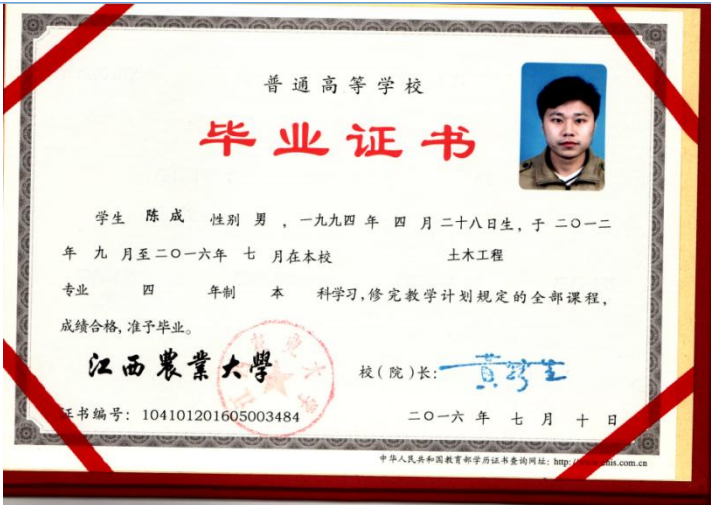 普通高等学校
毕业证书
学生 陈成 性别 男 ，一九九四 年 四 月 二十八日生，于 二〇一二
年 九 月至二〇一六年 七 月在本校 土木工程
专业 四 年制 本 科学习，修完教学计划规定的全部课程，
成绩合格，准予毕业。
江西農業大學
校（院）长：
证书编号：104101201605003484
二〇一六 年 七 月 十 日
中华人民共和国教育部学历证书查询网址：http: